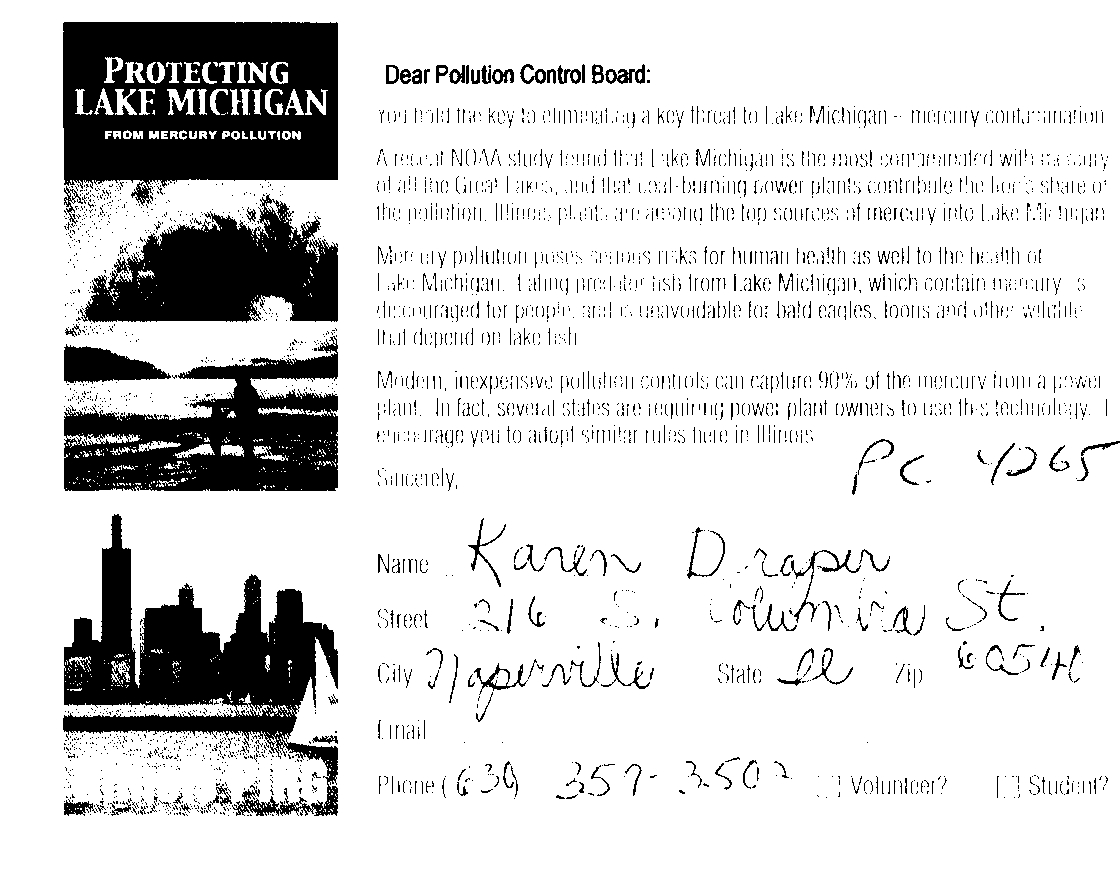 PROTECTING
LAKE MICHIGAN
FROM MERCURY POLLUTION
Dear Pollution Control Board:
You hold the key to eliminating a key threat to Lake Michigan – mercury contamination
A recent NOAA study found that Lake Michigan is the most contaminated with mercury
of all the Great Lakes, and that coal-burning power plants contribute the lion's share of
the pollution. Illinois plants are among the top sources of mercury into Lake Michigan
Mercury pollution poses serious risks for human health as well to the health of
Lake Michigan. Eating predator fish from Lake Michigan, which contain mercury is
discouraged for people, and is unavoidable for bald eagles, loons and other wildlife
that depend on lake fish
Modern, inexpensive pollution controls can capture 90% of the mercury from a power
plant. In fact, several states are requiring power plant owners to use this technology. I
encourage you to adopt similar rules here in Illinois
PC 4265
Sincerely,
Name Karen Draper
Street 216 S. Columbia St.
City Naperville State Il Zip 60540
Email
Phone (630) 357-3502 Volunteer? Student?